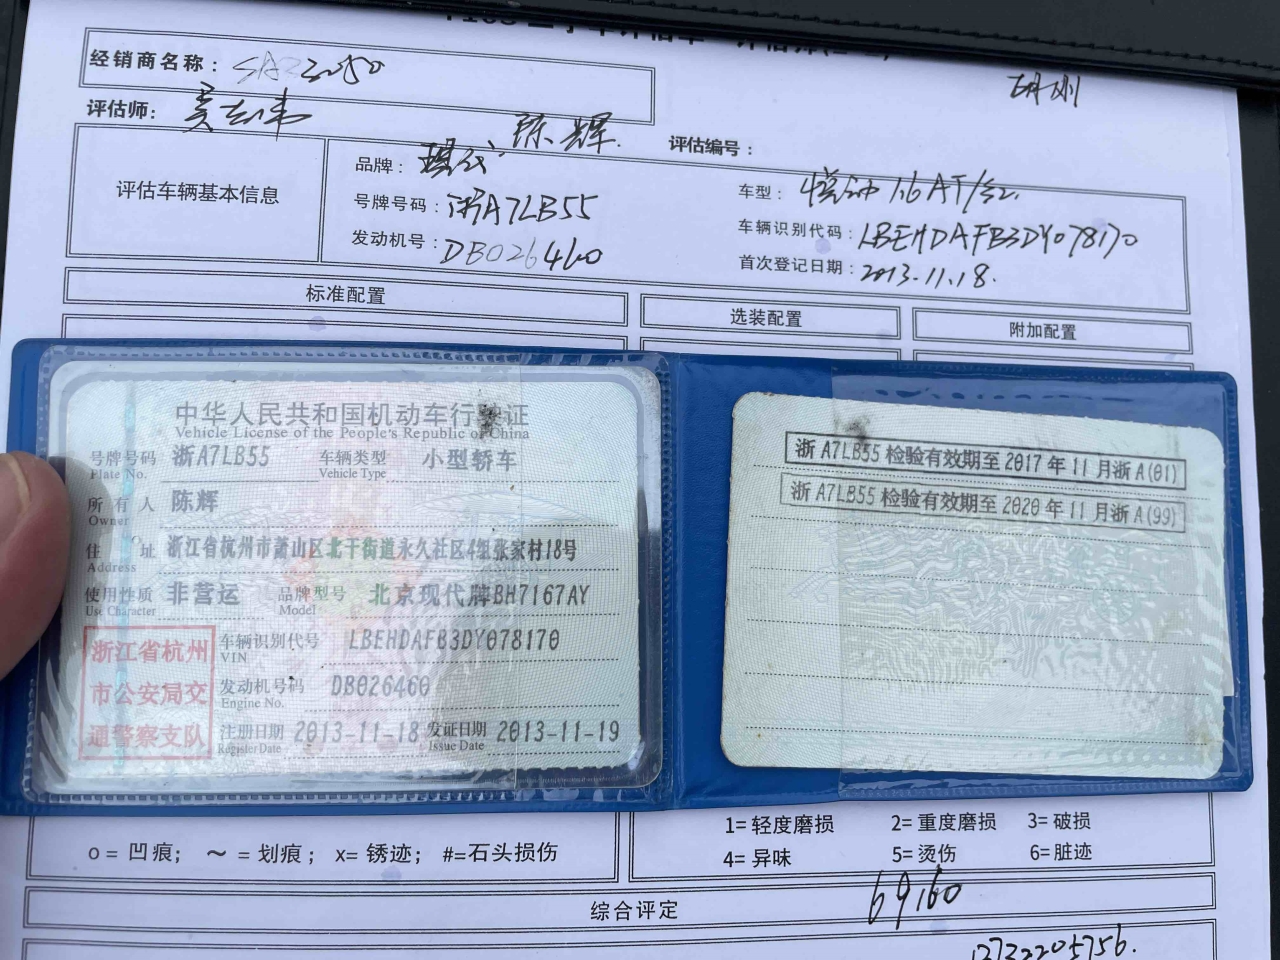 经销商名称：
评估师：
陈辉
评估编号：
评估车辆基本信息
品牌：现代
车型：悦动 1.6 AT/红.
号牌号码：浙A7LB55
车辆识别代码：LBEHDAFB3DY078170
发动机号：DB026460
首次登记日期：2013.11.18.
标准配置
选装配置
附加配置
中华人民共和国机动车行驶证
Vehicle License of the People's Republic of China
号牌号码 浙A7LB55 车辆类型 小型轿车
Plate No. Vehicle Type
所有人 陈辉
Owner
住址 浙江省杭州市萧山区北干街道永久社区4组张家村18号
Address
使用性质 非营运 品牌型号 北京现代牌BH7167AY
Use Character Model
浙江省杭州
市公安局交
通警察支队
车辆识别代号 LBEHDAFB3DY078170
VIN
发动机号码 DB026460
Engine No.
注册日期 2013-11-18 发证日期 2013-11-19
Register Date Issue Date
浙A7LB55检验有效期至2017年11月浙A(01)
浙A7LB55检验有效期至2020年11月浙A(99)
o = 凹痕； ～ = 划痕； x= 锈迹； #=石头损伤
1= 轻度磨损 2= 重度磨损 3= 破损
4= 异味 5= 烫伤 6= 脏迹
综合评定
69160